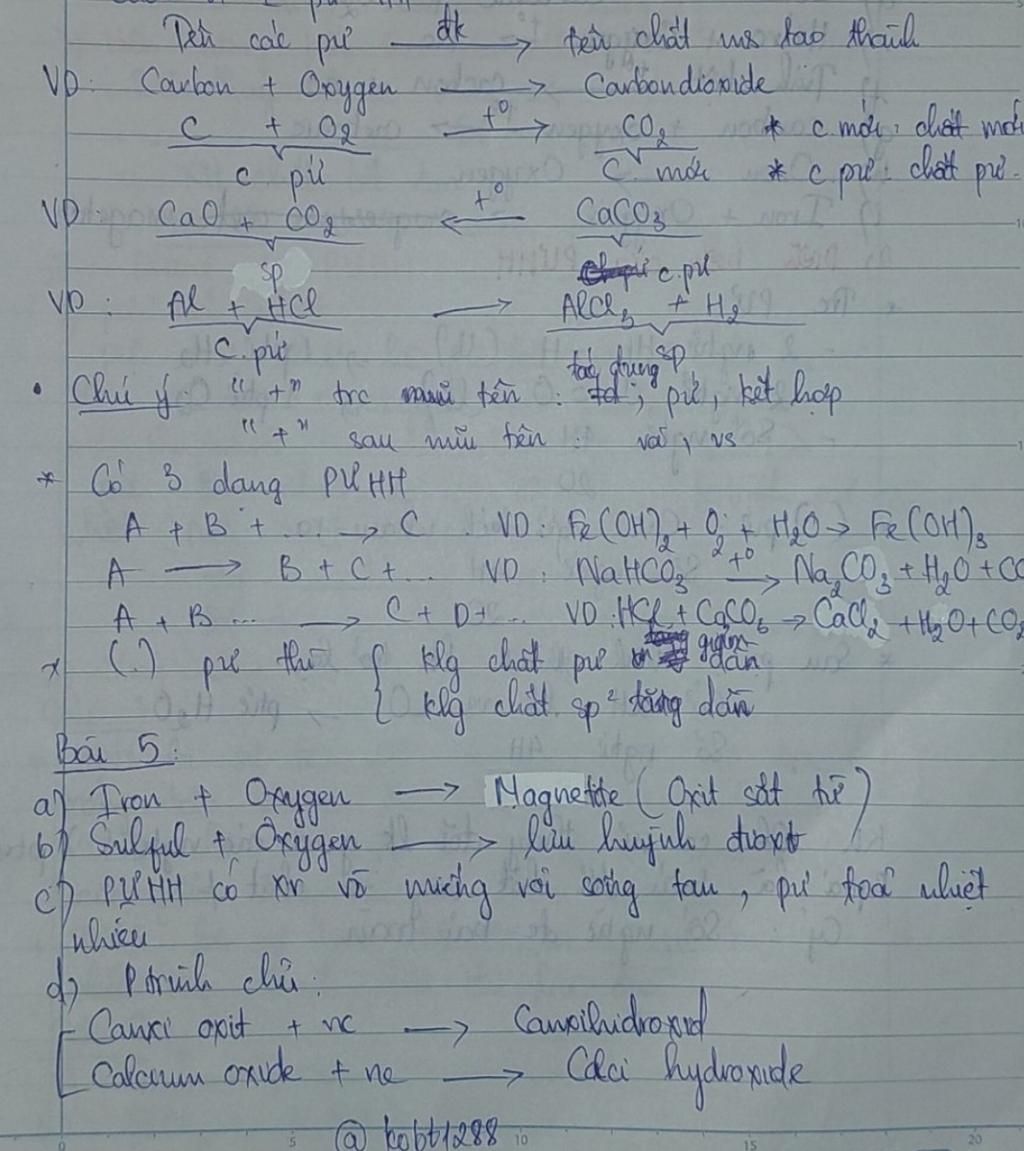 Tên các pứ đk → tên chất ms tạo thành
VD: Carbon + Oxygen → Carbondioxide
C + O2 t° → CO2 * c mới: chất mới
c pứ C mới * c pư: chất pư.
VD: CaO + CO2 ← t° CaCO3
sp c.pư
VD: Al + HCl → AlCl3 + H2
C. pứ sp
tác dụng
• Chú ý: "+" trc mũi tên: td, pứ, kết hợp
"+" sau mũi tên: và, vs
* Có 3 dạng PƯHH
A + B + ... → C VD: Fe(OH)2 + O2 + H2O → Fe(OH)3
A → B + C + ... VD: NaHCO3 t° → Na2CO3 + H2O + CO
A + B ... → C + D + ... VD: HCl + CaCO3 → CaCl2 + H2O + CO2
* (.) pư thì { klg chất pư giảm dần
klg chất sp² tăng dần
Bài 5:
a) Iron + Oxygen → Magnetite (Oxit sắt từ)
b) Sulful + Oxygen → lưu huỳnh đioxit
c) PƯHH có xr vì miếng vôi sống tan, pư toả nhiệt
nhiều
d) Ptrình chữ:
Canxi oxit + nc → Canxihidroxid
Calcium oxide + nc → Calci hydroxide
@kobt1288